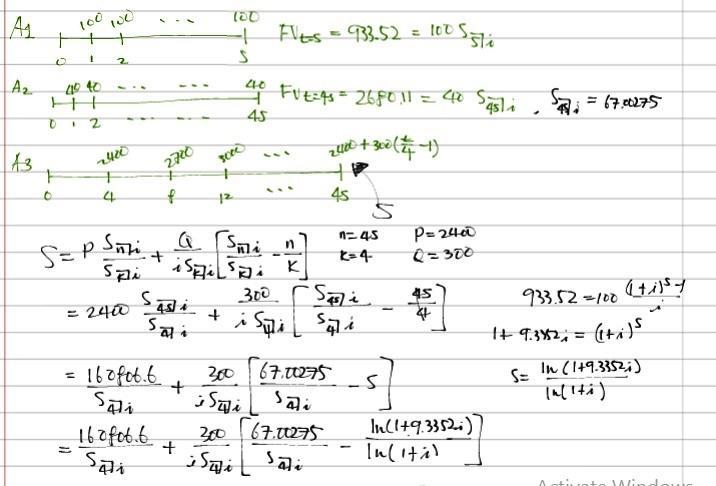 A1 100 100 ... 100 FVt=s = 933.52 = 100 S_s⌉i
0 1 2 S
A2 40 40 ... ... 40 FVt=4s = 2680.11 = 40 S_4s⌉i , S_4s⌉i = 67.00275
0 1 2 ... ... 4S
A3 2400 2700 3000 ... 2400 + 300(t/4 - 1)
0 4 8 12 ... 4S
S
S = P S_n⌉i / S_k⌉i + Q / i S_k⌉i [ S_n⌉i / S_k⌉i - n/k ] n=4S P=2400
k=4 Q=300
= 2400 S_4s⌉i / S_4⌉i + 300 / i S_4⌉i [ S_4s⌉i / S_4⌉i - 4S/4 ] 933.52 = 100 (1+i)^S-1 / i
1 + 9.3352i = (1+i)^S
= 160806.6 / S_4⌉i + 300 / i S_4⌉i [ 67.00275 / S_4⌉i - S ] S = ln(1+9.3352i) / ln(1+i)
= 160806.6 / S_4⌉i + 300 / i S_4⌉i [ 67.00275 / S_4⌉i - ln(1+9.3352i) / ln(1+i) ]
Activate Windows